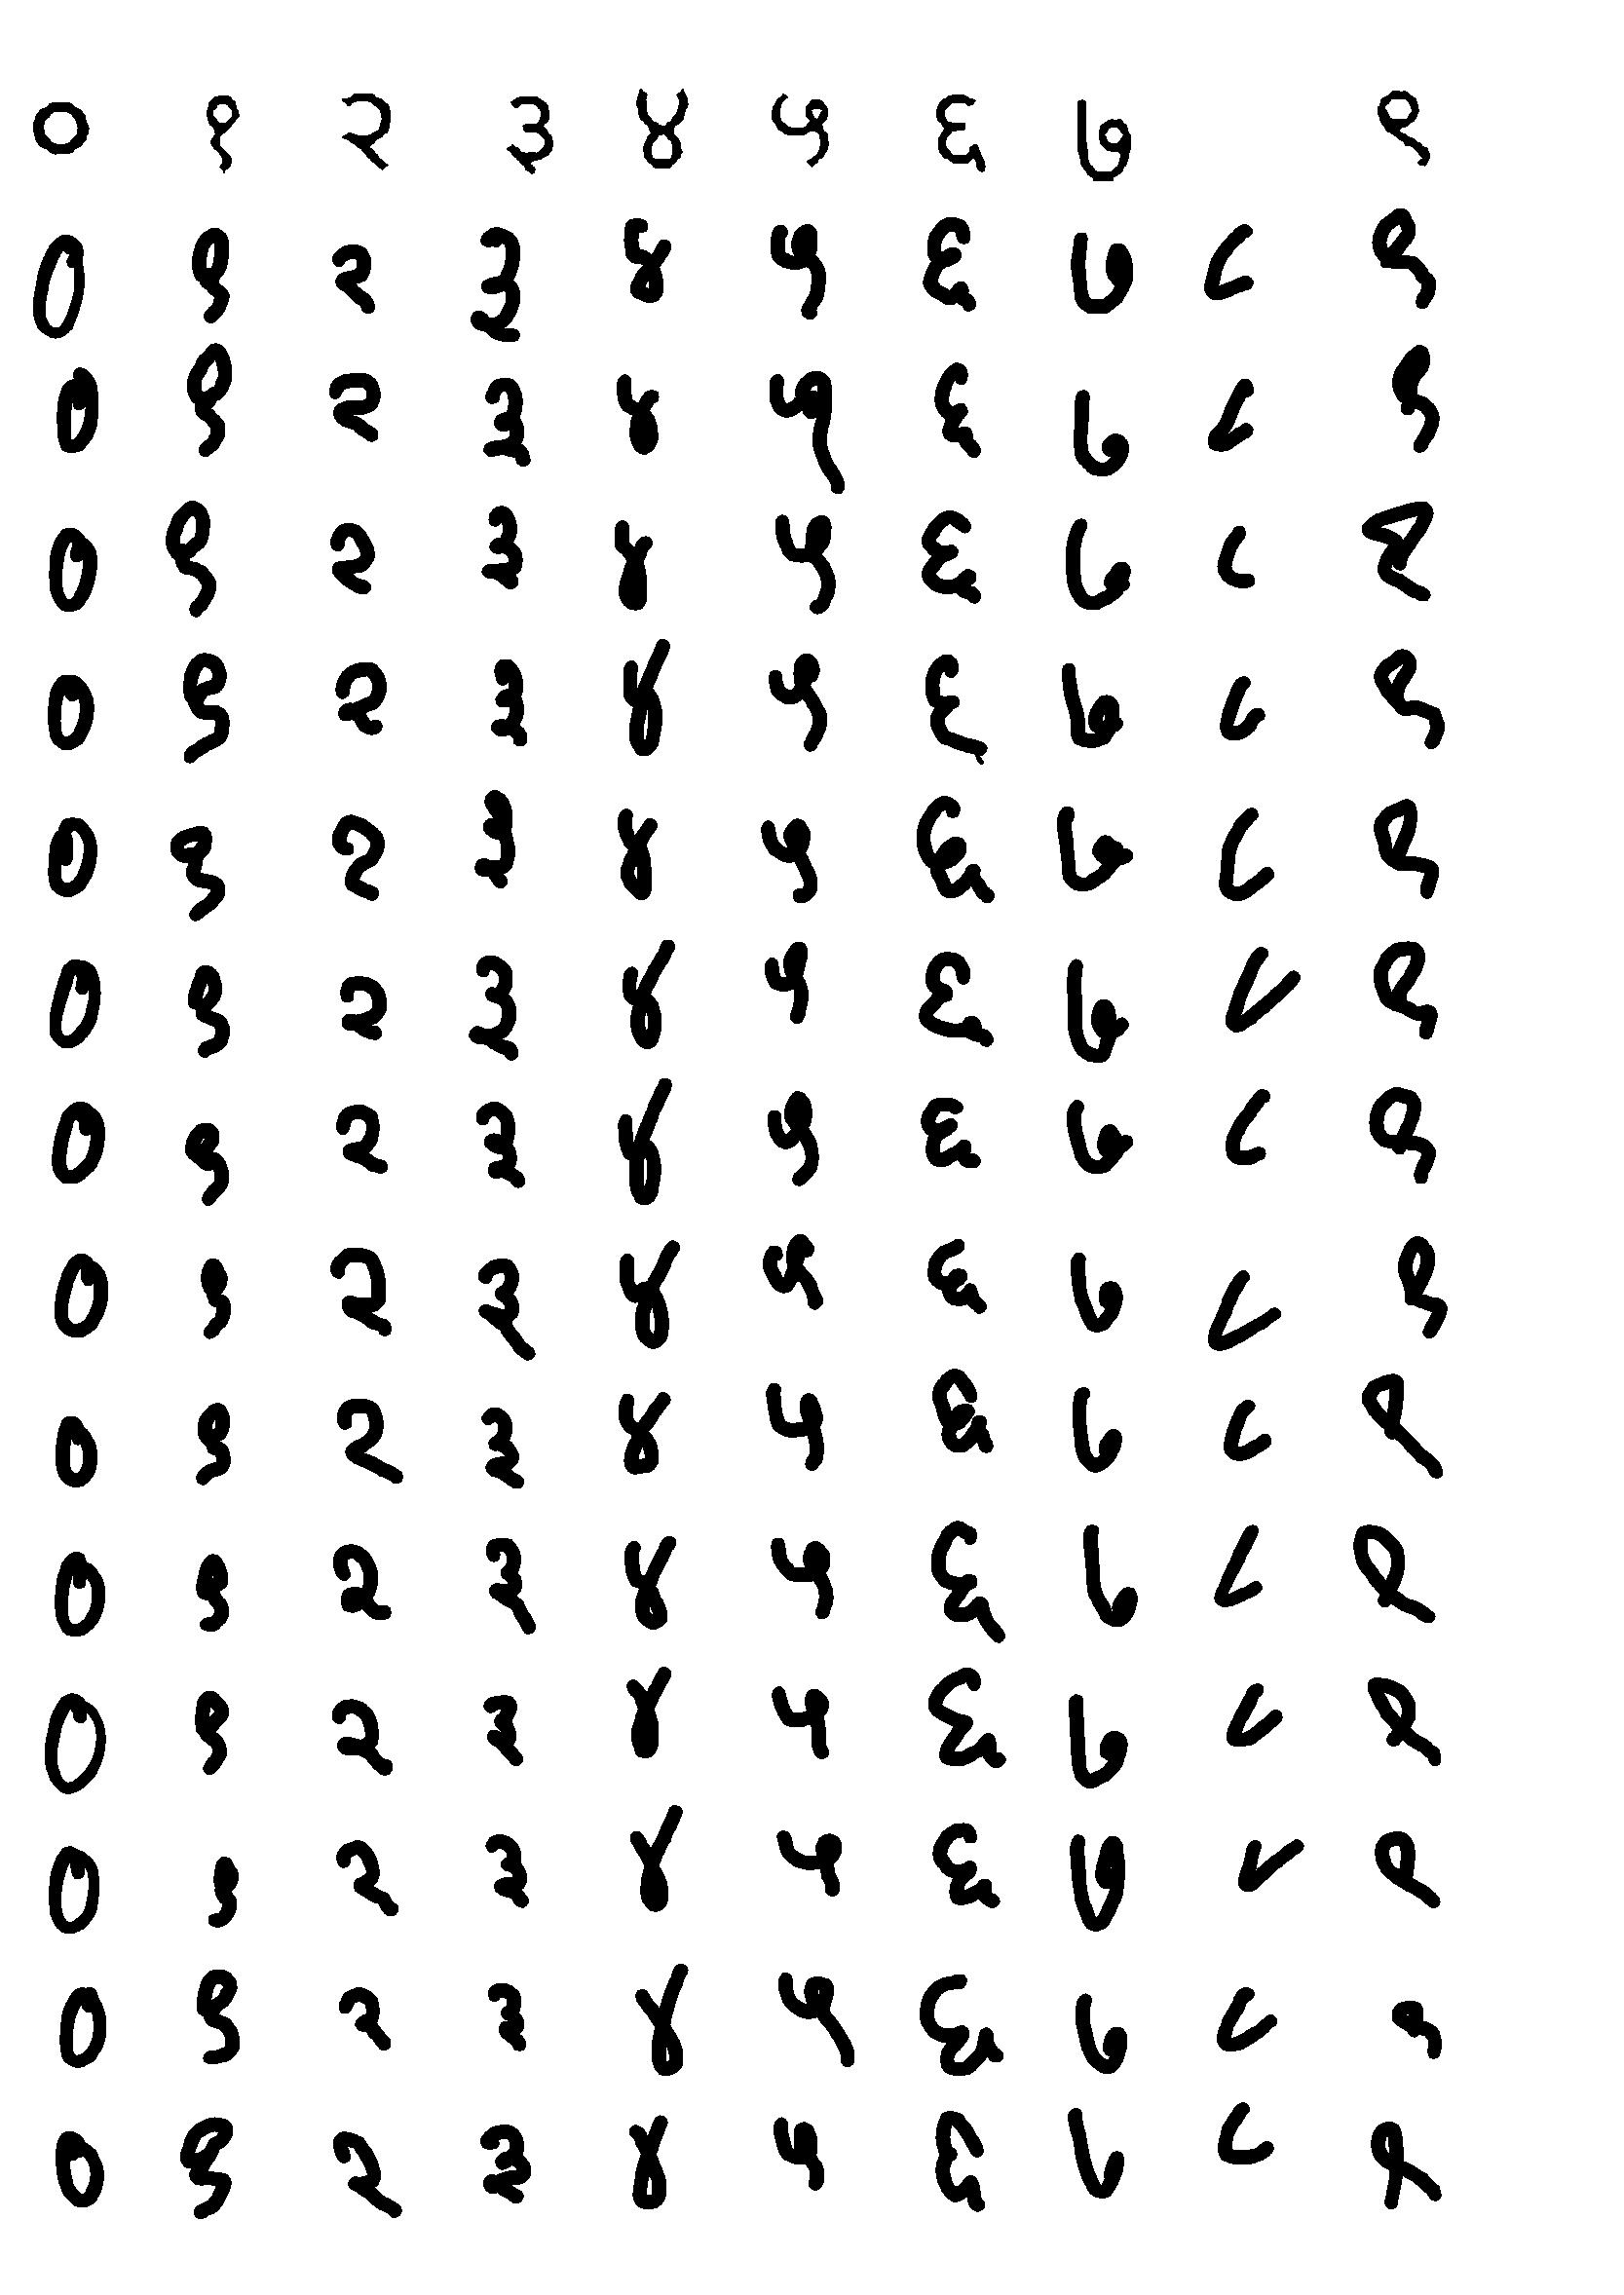 ० १ २ ३ ४ ५ ६ ७ ९
० १ २ ३ ४ ५ ६ ७ ८ ९
० १ २ ३ ४ ५ ६ ७ ८ ९
० १ २ ३ ४ ५ ६ ७ ८ ९
० १ २ ३ ४ ५ ६ ७ ८ ९
० १ २ ३ ४ ५ ६ ७ ८ ९
० १ २ ३ ४ ५ ६ ७ ८ ९
० १ २ ३ ४ ५ ६ ७ ८ ९
० १ २ ३ ४ ५ ६ ७ ८ ९
० १ २ ३ ४ ५ ६ ७ ८ ९
० १ २ ३ ४ ५ ६ ७ ८ ९
० १ २ ३ ४ ५ ६ ७ ८ ९
० १ २ ३ ४ ५ ६ ७ ८ ९
० १ २ ३ ४ ५ ६ ७ ८ ९
० १ २ ३ ४ ५ ६ ७ ८ ९